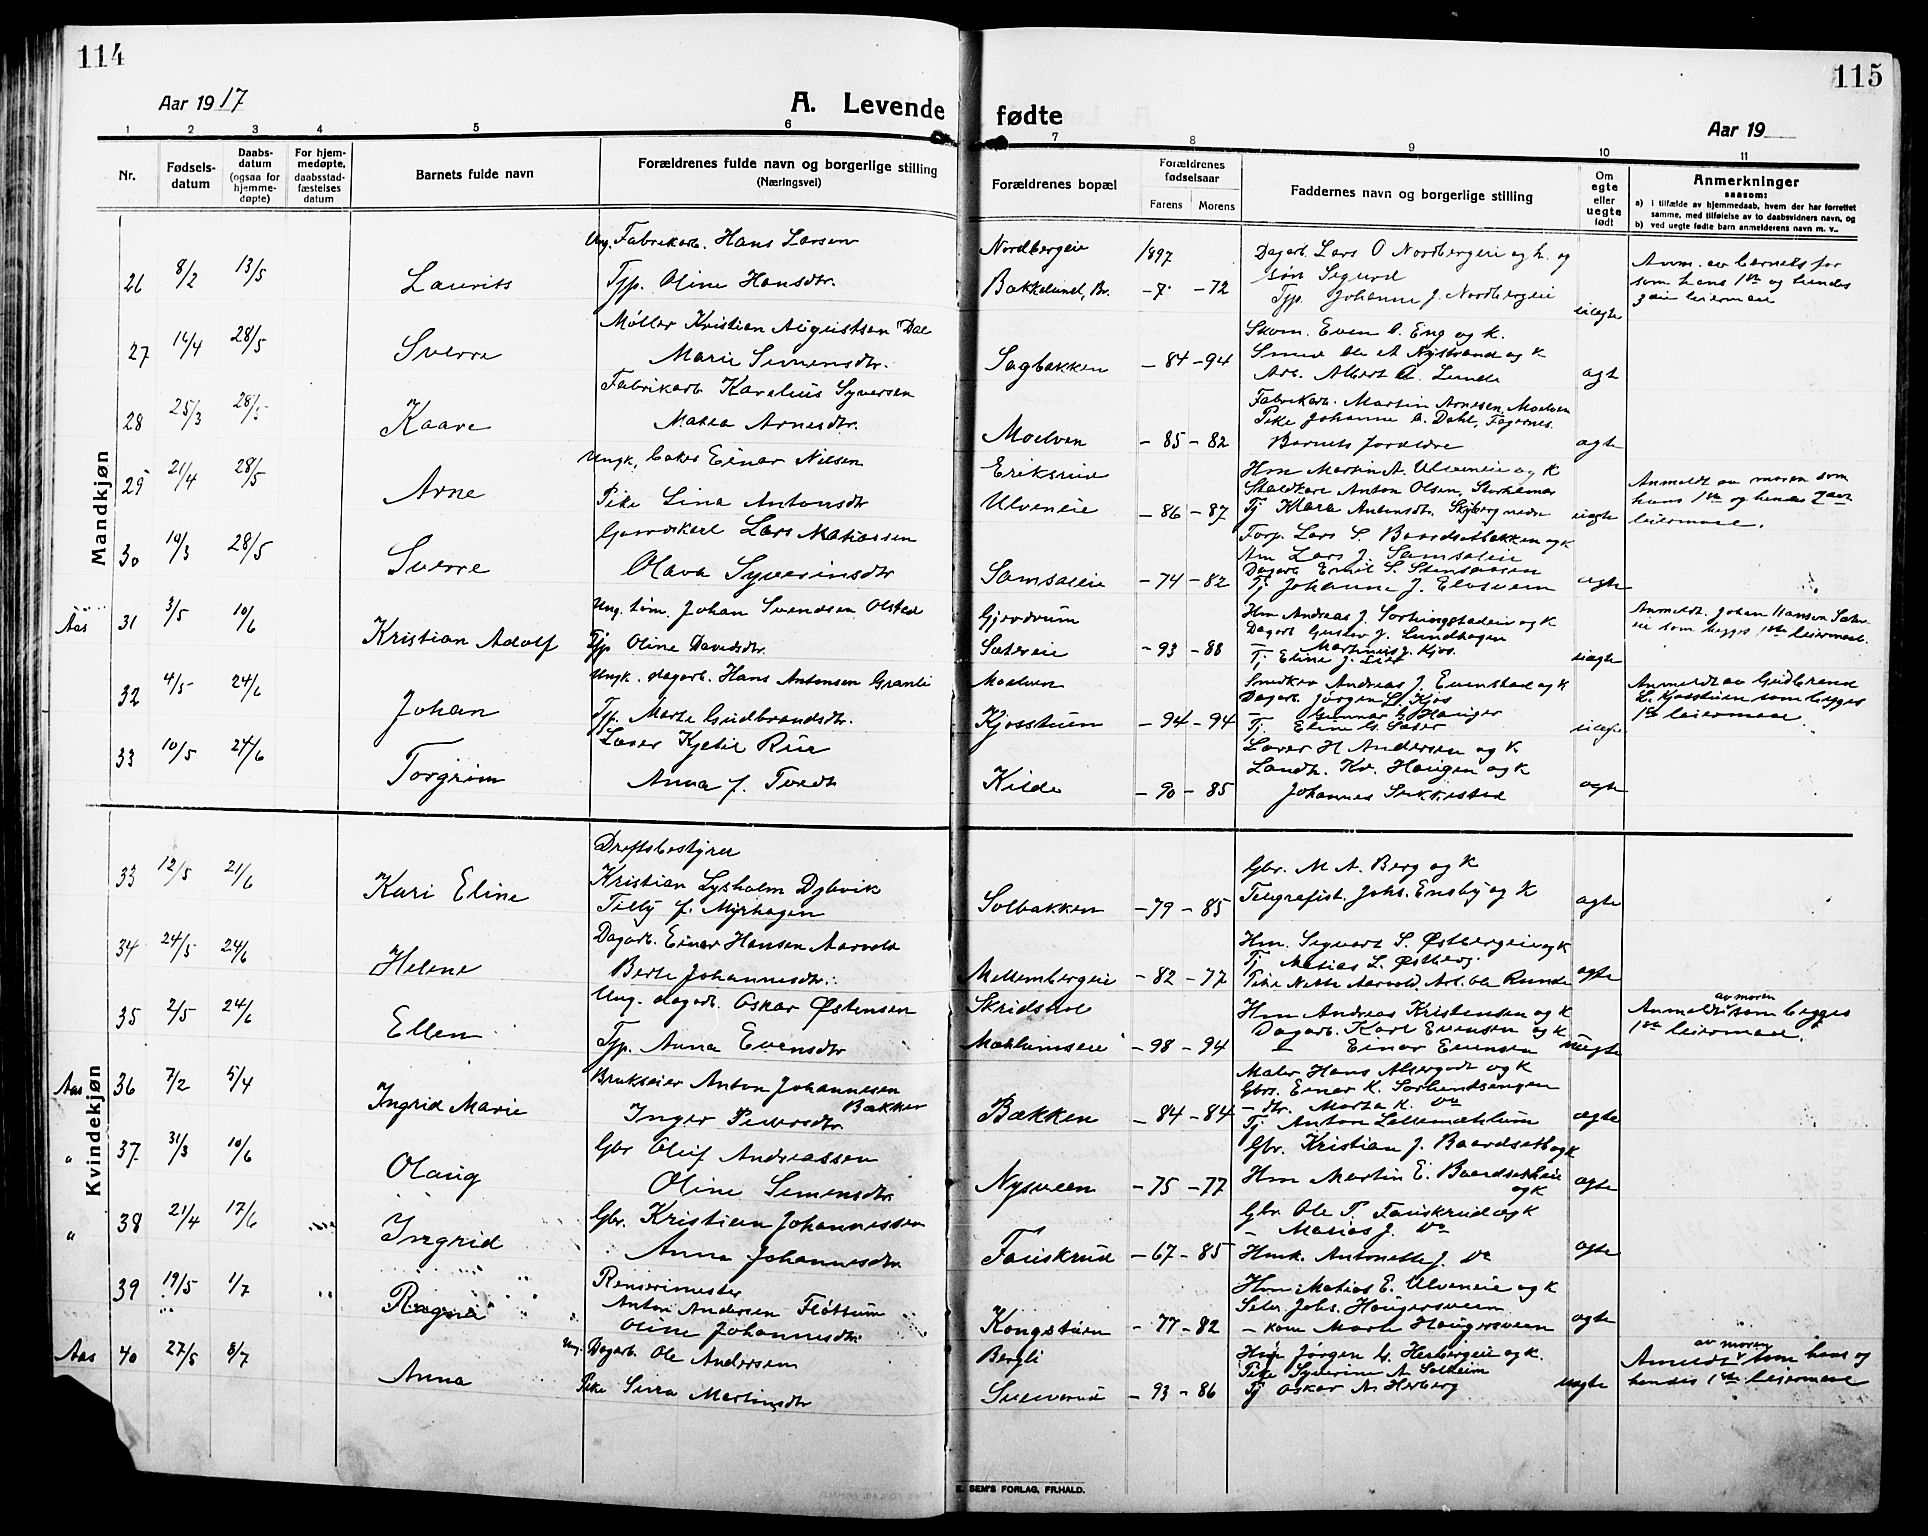 114
115
Aar 1917
A. Levende fødte
Aar 19
1 2 3 4 5 6 7 8 9 10 11
Nr.
Fødsels-
datum
Daabs-
datum
(ogsaa for
hjemme-
døpte)
For hjem-
medøpte,
daabsstad-
fæstelses
datum
Barnets fulde navn
Forældrenes fulde navn og borgerlige stilling
(Næringsvei)
Forældrenes bopæl
Forældrenes
fødselsaar
Farens Morens
Faddernes navn og borgerlige stilling
Om
egte
eller
uegte
født
Anmerkninger
saasom:
a) i tilfælde av hjemmedaab, hvem der har forrettet
samme, med tilføielse av to daabsvidners navn, og
b) ved uegte fødte barn anmelderens navn m. v..
Mandkjøn
Ung. Fabrikarb. Hans Larsen Nordbergeie 1897 Dagarb. Lars O Nordbergeie og h. og
26 8/2 13/5 Laurits Tjp. Oline Hansdtr. Bakkelund, Br. -7- -72 søn Sigurd
Tjp. Johanne J. Nordbergeie uegte
som hans 1ste og hendes
leiermaal
Møller Kristian Augustsen Dal Skom. Even O. Eng og k.
27 14/4 28/5 Sverre Marie Simensdtr. Sagbakken -84 -94 Smed Ole A Nystrand og k
Arb. Albert A. Lunde egte
Fabrikarb Karelius Syversen Fabrikarb. Martin Arnesen, Moelven
28 25/3 28/5 Kaare Matea Arnesdtr. Moelven -85 -82 Pike Johanne O. Dahl, Fagernes.
Barnets forældre egte
Ungk. Einar Nilsen Eriksrud Hm Martin A. Ulveneie og k
29 21/4 28/5 Arne Pike Lina Antonsdtr Ulveneie -86 -87 Staldkarl Anton Olsen, Storhamar
Tj Klara Antonsdtr. Skjberg nedre uegte
Anmeldt av moren som
hans 1ste og hendes
leiermaal.
Gaardskarl Lars Matiassen Forp. Lars S. Baardsetbakken og k
30 10/3 28/5 Sverre Olava Syverinsdtr Samsaleie -74 -82 Lars J. Samsaleie
Dagarb Emil S. Stensaasen
Tj Johanne J. Elvsveen egte
Aas 31 3/5 10/6 Kristian Adolf Ung. tøm. Johan Svendsen Olstad Gjøvdrum
Tjp. Oline Davidsdtr. Sætereie -93 -88 Hm Andreas J. og k
Dagarb Gustav J. Lundhagen
— Martinus J. Kjos.
Tj. Eline J. Lier uegte
Anmeldt. Johan Hansen Sæter-
eie som begges 1ste leiermaal.
32 4/5 24/6 Johan Ungk. dagarb. Hans Antonsen Granli Moelven
Tjp. Marte Gudbrandsdtr. Kjosstuen -94 -94 Smedkar Andreas J. Evenstad og k
Dagarb. Jørgen L. Kjos
Gunnar G. Hauger
Tj. Eline G. Sæter uegte
Anmeldt av Gudbrand
L. Kjosstuen som begges
1ste leiermaal.
33 10/5 24/6 Torgrim Lærer Kjetil Rue
Anna f. Tvedt Kilde -90 -85 Lærer H. Andersen og k
Landh. Kr. Haugen og k
Johannes Sukkestad egte
Kvindekjøn
Driftsbestyrer
33 12/5 21/6 Kari Eline Kristian Lysholm Dybvik
Tilly f. Myrhagen Solbakken -79 -85 Gbr. M A. Berg og k
Telegrafist. Johs. Ensby og k egte
34 24/5 24/6 Helene Dagarb. Einar Hansen Aarvold
Berte Johannesdtr. Mellembergeie -82 -77 Hm. Sigvart S. Østbergeie og k
Tj Matias L. Østberg.
Pike Nette Aarvold, Arb. Ole Runde egte
35 2/5 24/6 Ellen Ung. dagarb. Oskar Østensen Skridshol
Tjp. Anna Evensdtr Mæhlumseie -98 -94 Hm Andreas Kristensen og k
Dagarb. Karl Evensen og k
— Einar Evensen uegte
Anmeldt av moren som begges
1ste leiermaal.
Aas 36 7/2 5/4 Ingrid Marie Brukseier Anton Johannesen Bækken
Inger Pedersdtr Bækken -84 -84 Maler Hans Alsergodt og k
Gbrs. Einar K. Sørlundsengen
— dtr. Marta K. Do
Tj Anton Lillemæhlum egte
" 37 31/3 10/6 Olaug Gbr Oluf Andreassen
Oline Simensdtr Nysveen -75 -77 Gbr. Kristian J. Baardseth og k
Hm Martin E. Baardsetheie
og k egte
" 38 21/4 17/6 Ingrid Gbr. Kristian Johannessen
Anna Johannesdtr Fauskrud -67 -85 Gbr Ole P. Fauskrud og k
— Marius J. Do
Hmk. Antonette J. Do egte
39 19/5 1/7 Ragna Renserimester
Anton Andersen Fløttum
Oline Johannesdtr. Kongstuen -77 -82 Hm Matias E. Ulveneie og k
Selv. Johs. Haugersveen
— kone Marte Haugersveen egte
Aas 40 27/5 8/7 Anna Ung. Dagarb. Ole Andersen Bergli
Pike Sina Martinsdtr Sveverud -93 -86 Hm Jørgen H. Herbergeie og k.
Pike Syverine A Solheim
Tj Oskar A. Herberg uegte
Anmeldt av moren som hans og
hendes 1ste leiermaal
E. SEM'S FORLAG, FR.HALD.